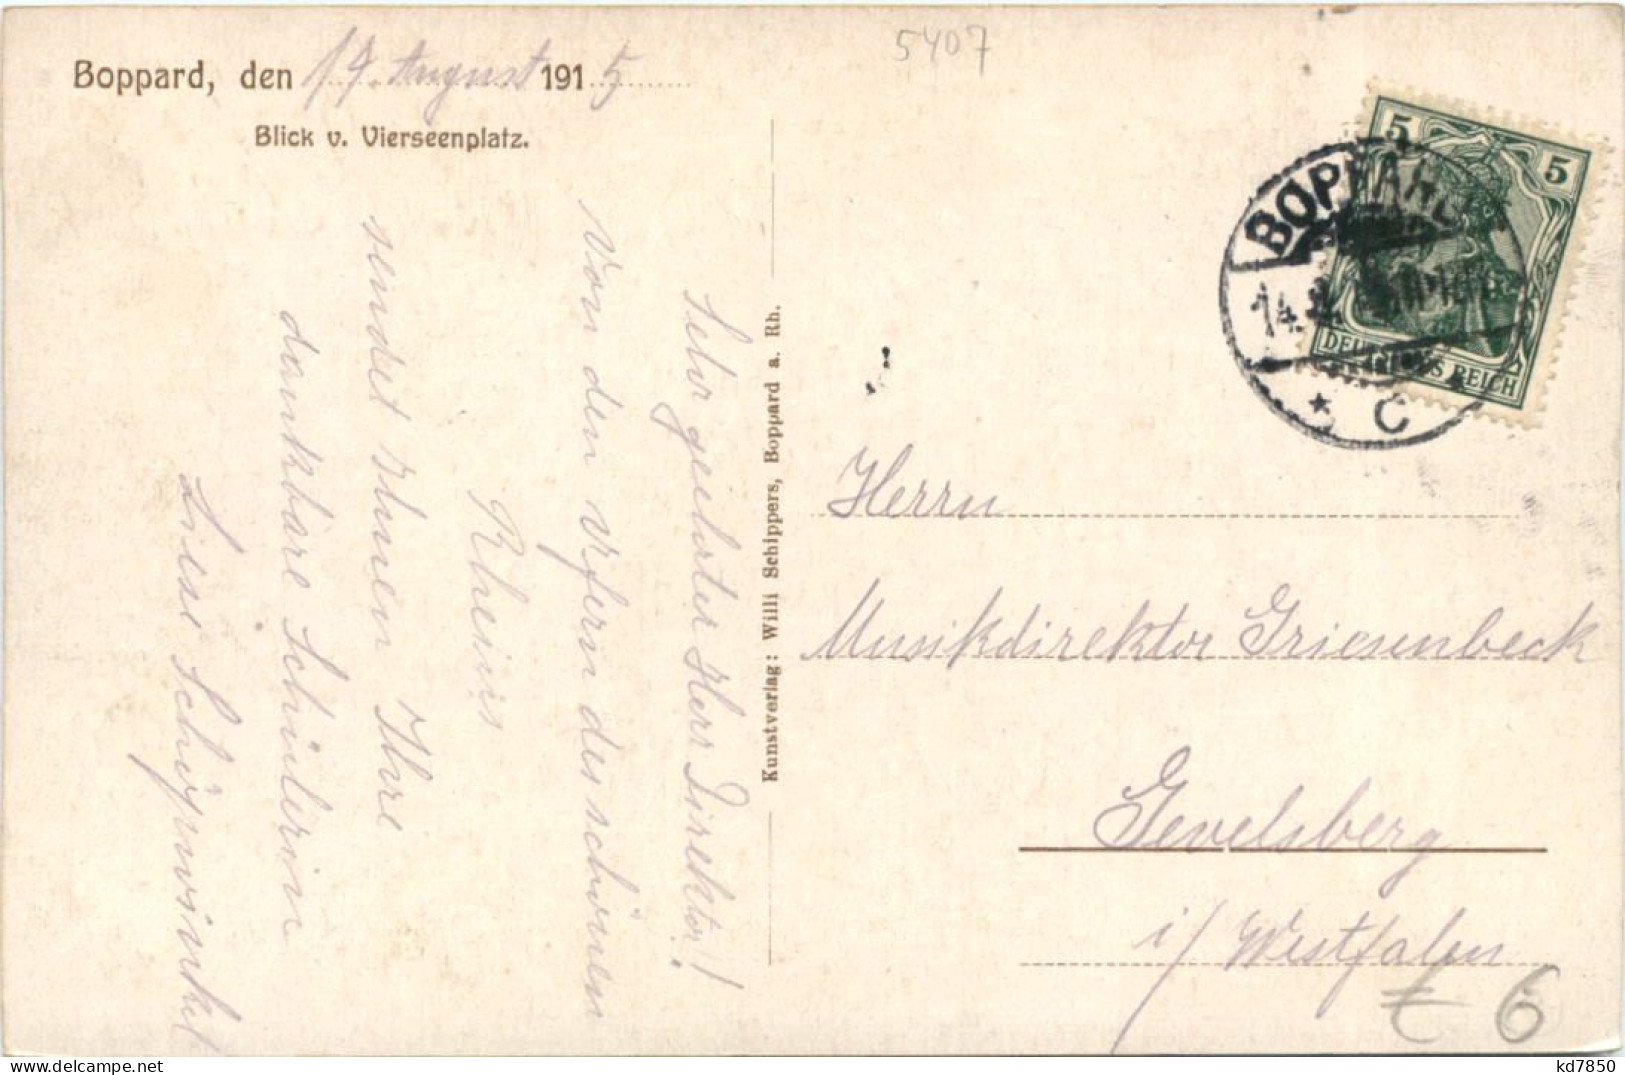 5407
Boppard, den 14. August 1915
Blick v. Vierseenplatz.
Sehr geehrter Herr Direktor!
Von den Ufern des schönen
Rheins
sendet Ihnen Ihre
dankbare Schülerin
Liesel Schöpwinkel
Kunstverlag: Willi Schippers, Boppard a. Rh.
5 5
DEUTSCHES REICH
BOPPARD
14.8.
* C
Herrn
Musikdirektor Griesenbeck
Gevelsberg
i/ Westfalen
€ 6
kd7850